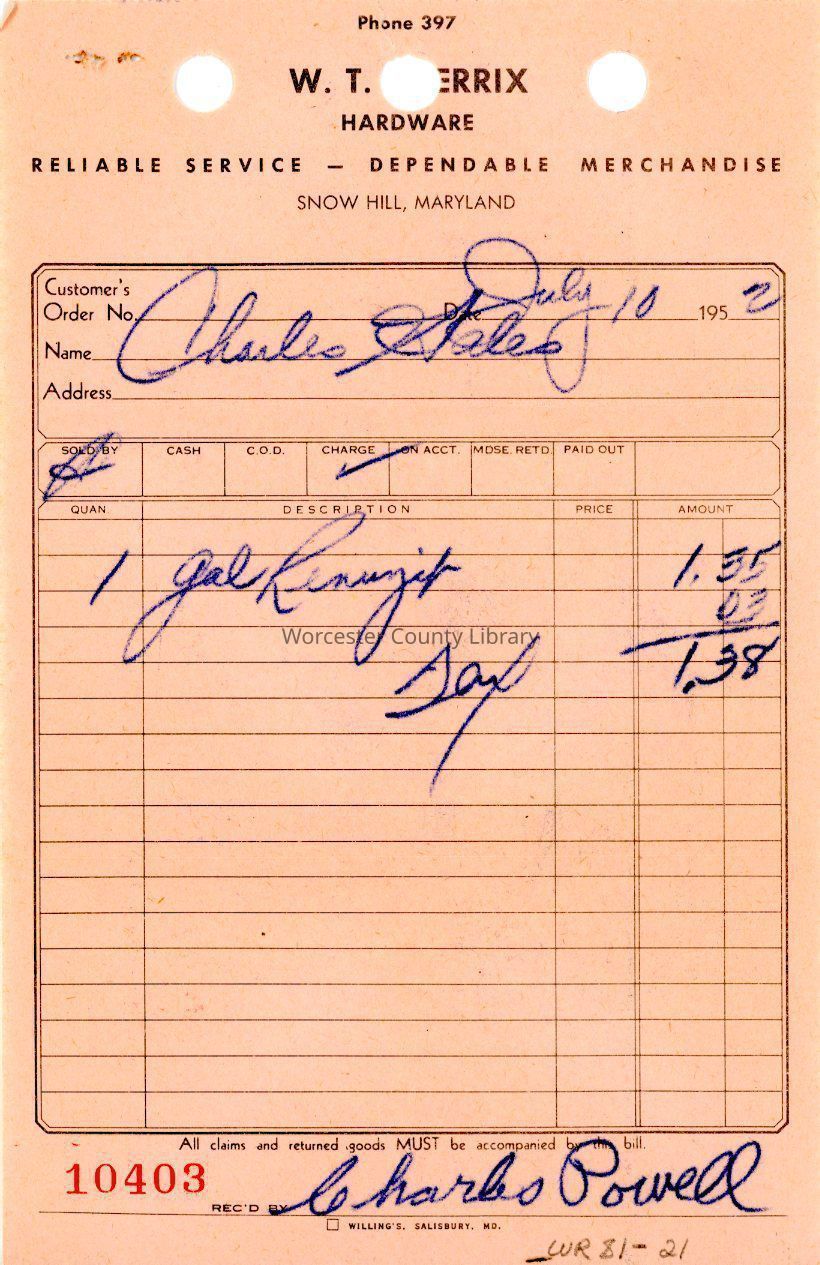 Phone 397
W. T. ERRIX
HARDWARE
RELIABLE SERVICE — DEPENDABLE MERCHANDISE
SNOW HILL, MARYLAND
Customer's
Order No. Date July 10 195 2
Name Charles
Address
SOLD BY CASH C.O.D. CHARGE ✓ ON ACCT. MDSE. RETD. PAID OUT
QUAN DESCRIPTION PRICE AMOUNT
1 gal Renuzit 1.35
03
Tax 1.38
Worcester County Library
All claims and returned goods MUST be accompanied by this bill.
10403
REC'D BY Charles Powell
WILLING'S, SALISBURY, MD.
WR 81-21